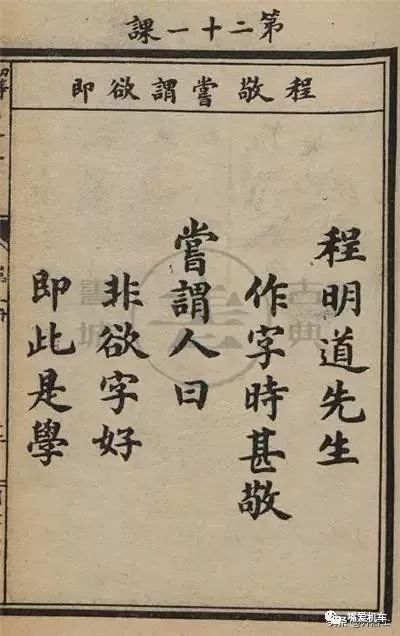 第二十一課
程敬嘗謂欲即
程明道先生
作字時甚敬
嘗謂人曰
非欲字好
即此是學
古典書城
嘴爱机车